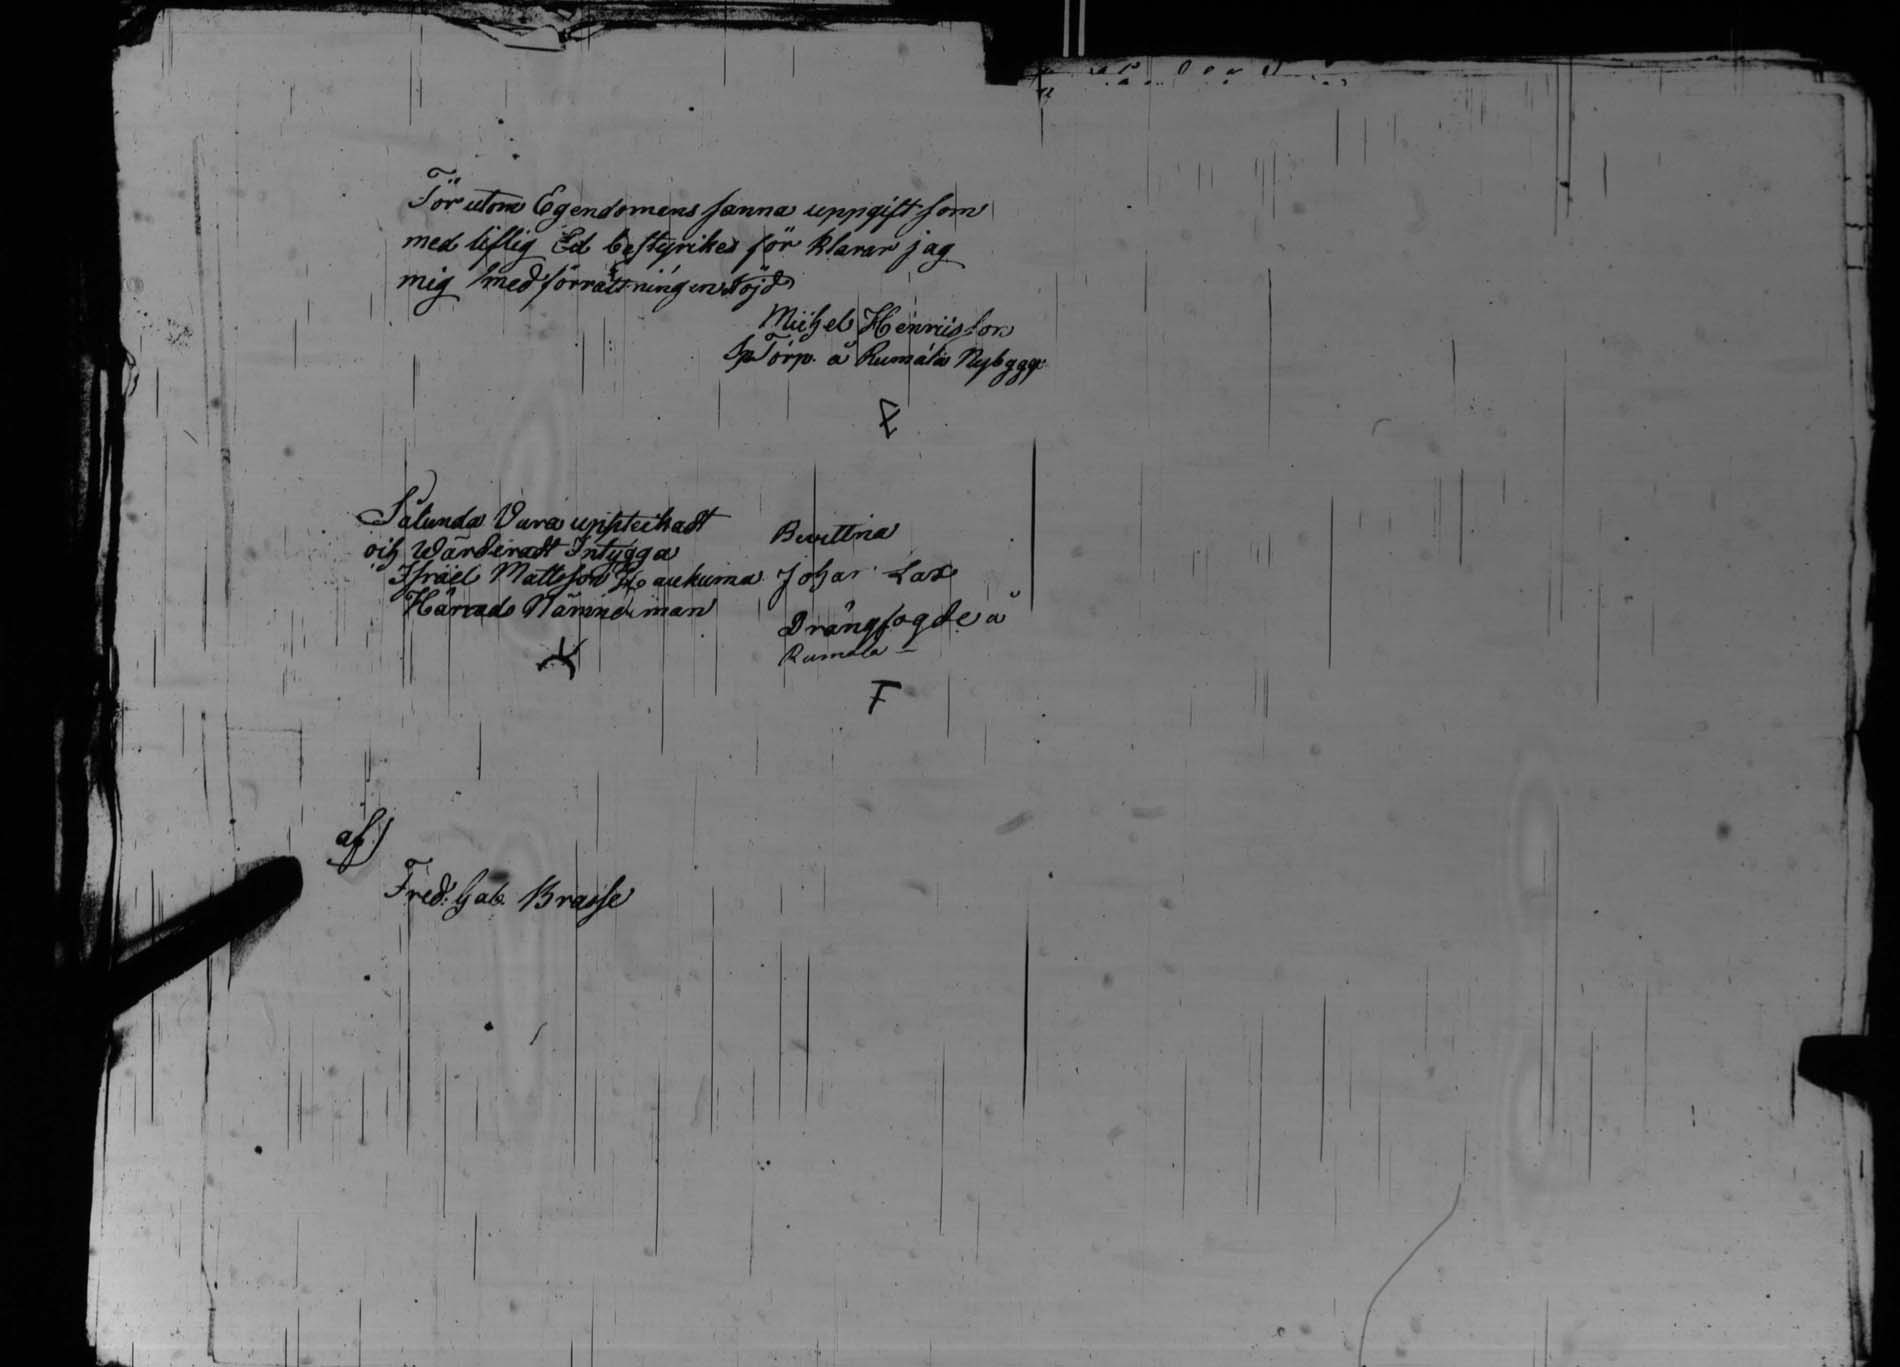 För utom Egendomens sanna uppgift som
med liflig Ed bestyrikes för klarar jag
mig med förrättningen nöjd
Michel Henricsson
Sp Torp. å Rumala Nybygge
Sålunda Vara uppteiknadt
och Wärderadt Intygga
Israel Mattsson Haukuma
Härrads Nämndeman
Bevittna
Johan Lax
Drängfogde å
Rumala –
F
af)
Fred: Gab. Brasse